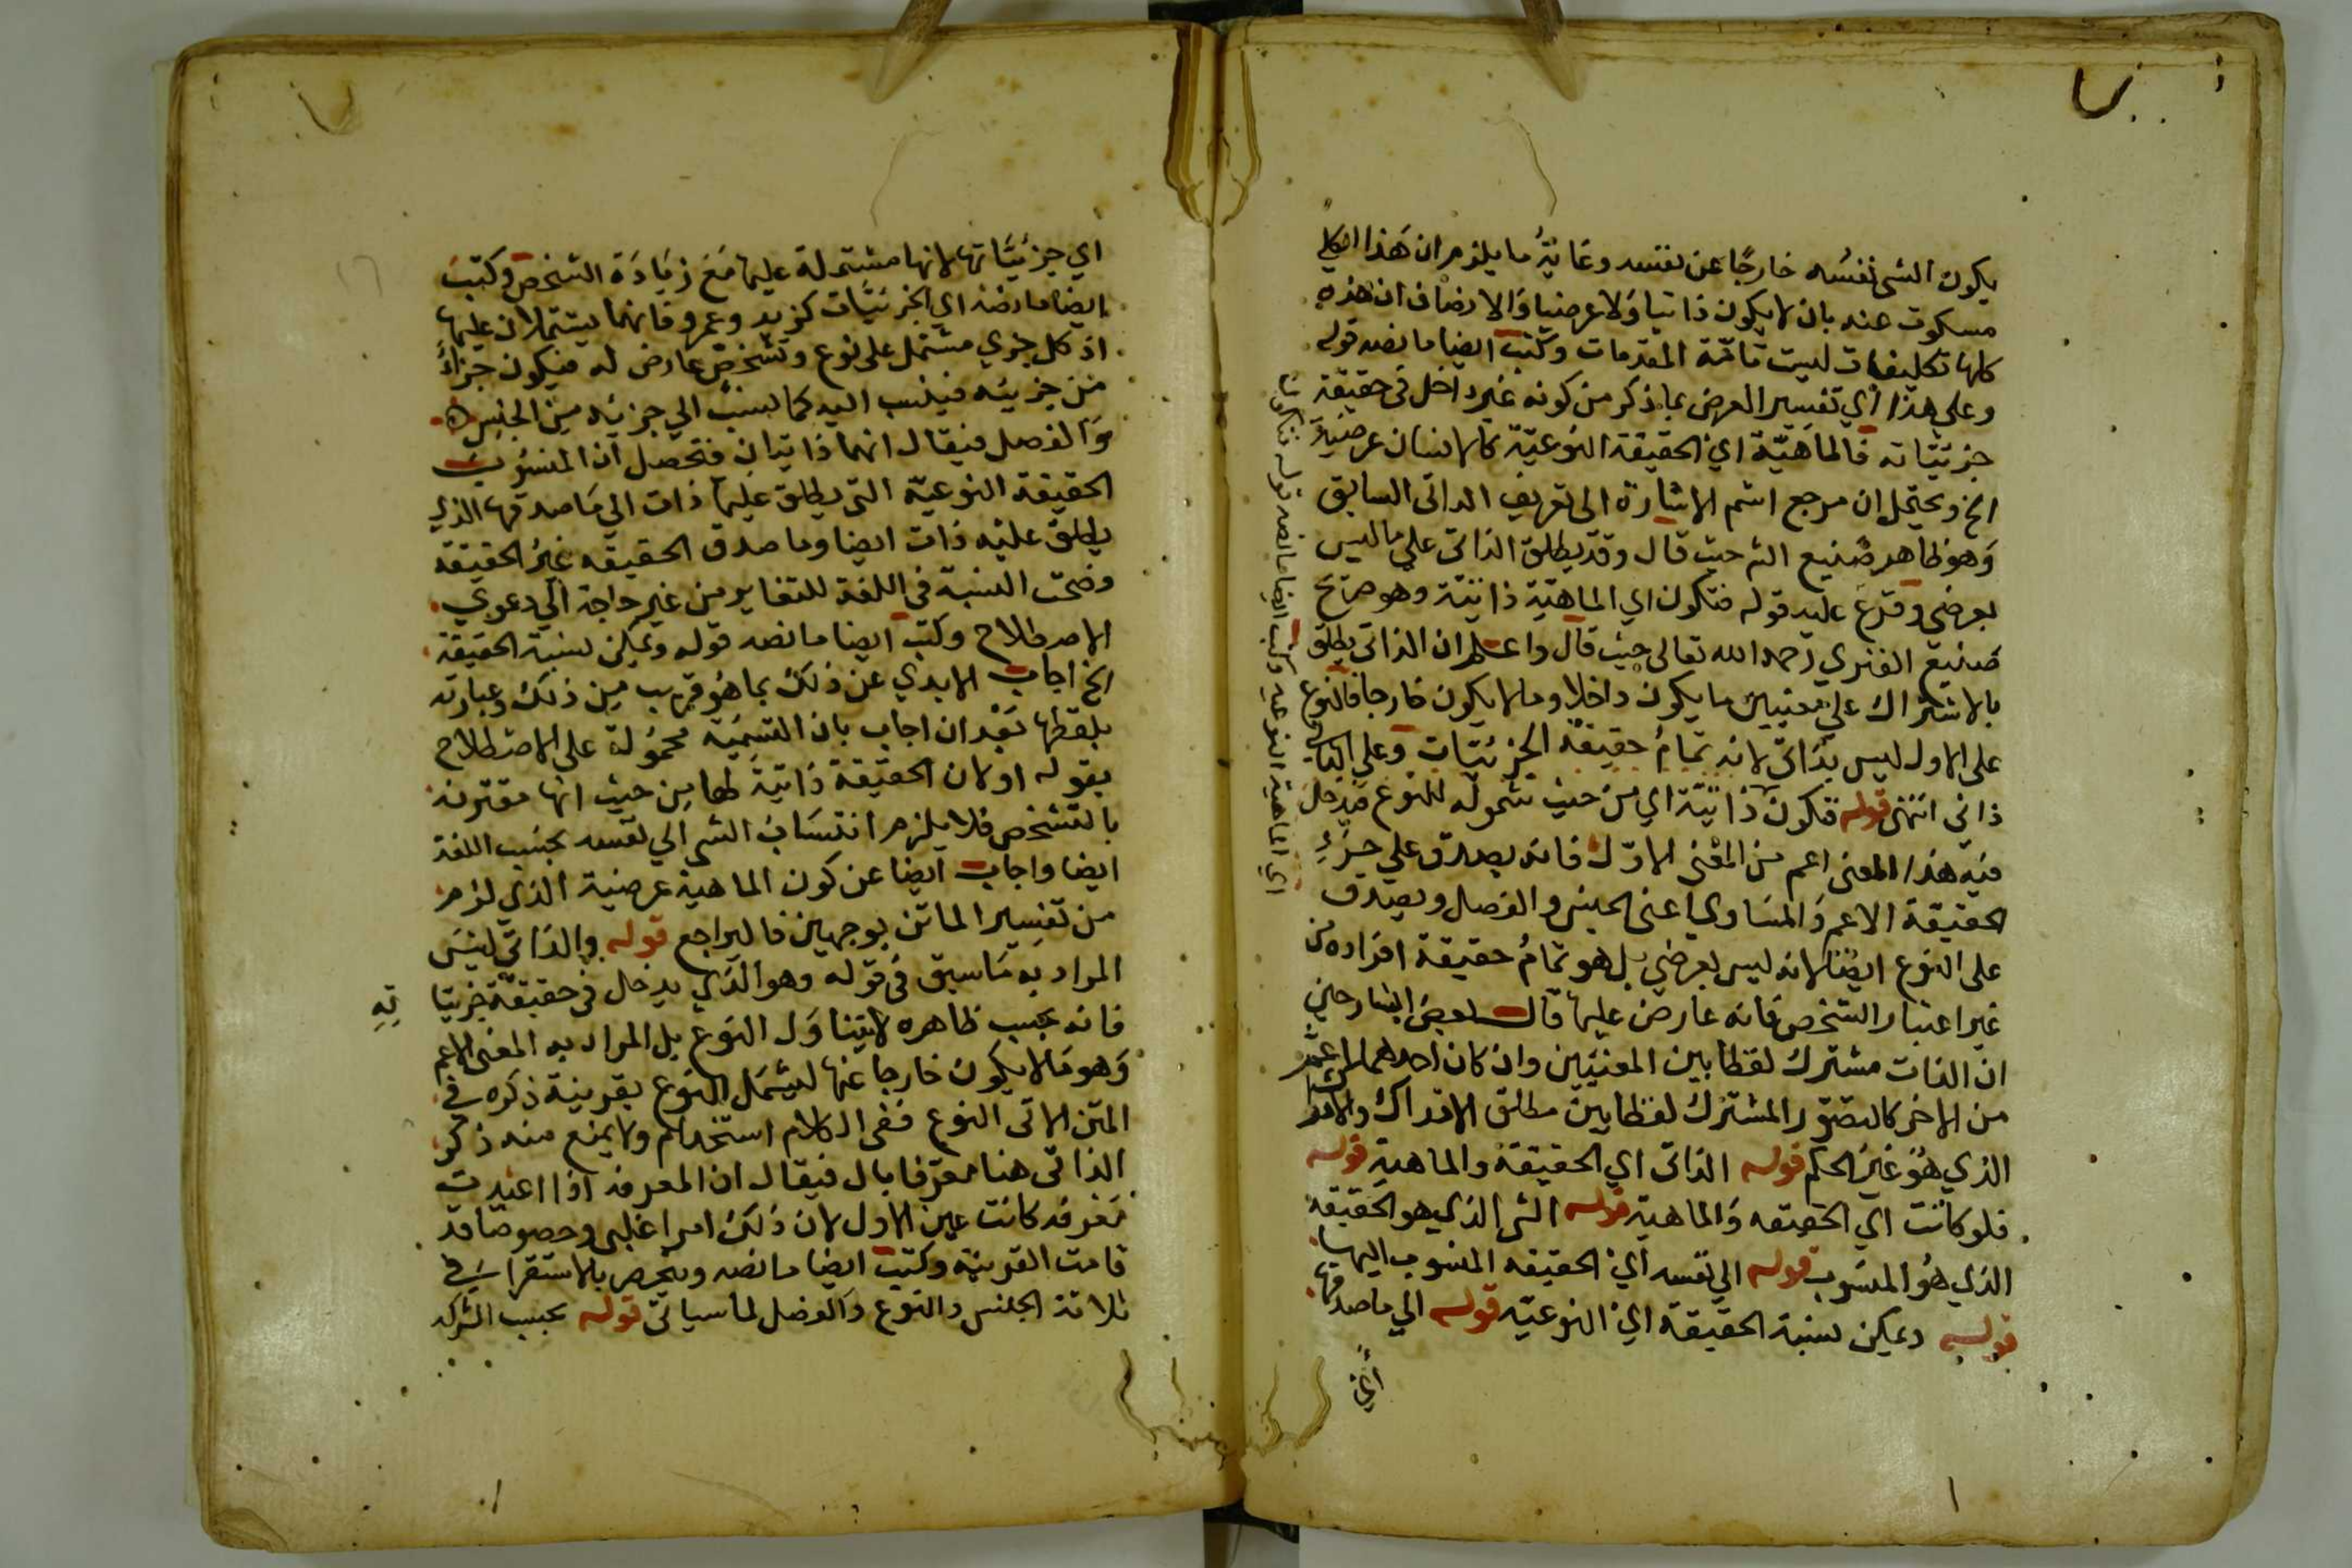 يكون الشي نفسه خارجا عن نفسه وغاية ما يلزم ان هذا الكلي
مسكوت عنه بان لا يكون ذاتيا ولا عرضيا والانصاف ان هذه
كلها تكليفات ليست تامة المقدمات وكتب ايضا ما نصه قوله
وعلى هذا اي تفسير العرض بما ذكر من كونه غير داخل في حقيقة
جزئياته فالماهية اي الحقيقة النوعية كالانسان عرضية
الخ ويحتمل ان مرجع اسم الاشارة الى تعريف الذاتي السابق
وهو ظاهر صنيع الشـ حيث قال وقد يطلق الذاتي على ما ليس
بعرضي وفرع عليه قوله فتكون اي الماهية ذاتية وهو صريح
صنيع الفنري رحمه الله تعالى حيث قال واعلم ان الذاتي يطلق
بالاشتراك على معنيين ما يكون داخلا وما لا يكون خارجا فالنوع
على الاول ليس بذاتي لانه تمام حقيقة الجزئيات وعلى الثاني
ذاتي انتهى قوله فتكون ذاتية اي من حيث شموله للنوع فيدخل
فيه هذا المعنى اعم من المعنى الاول فانه يصدق على جزء
الحقيقة الاعم والمساوي اعني الجنس والفصل ويصدق
على النوع ايضا لانه ليس بعرضي بل هو تمام حقيقة افراده من
غير اعتبار التشخص فانه عارض عليها قال بعض الشارحين
ان الذات مشترك لفظا بين المعنيين وان كان احدهما اعم
من الاخر كالتصور المشترك لفظا بين مطلق الادراك والادراك
الذي هو غير الحكم قوله الذاتي اي الحقيقة والماهية قوله
فلو كانت اي الحقيقه والماهية قوله الشي الذي هو الحقيقة
الذي هو المنسوب قوله الى نفسه اي الحقيقه المنسوب اليها
قوله ويمكن نسبة الحقيقة اي النوعيه قوله الى ما صدقها
اي
وكتب ايضا ما نصه قوله فتكون
اي الماهية النوعيه
اي جزئياتها لانها مشتملة عليها مع زيادة التشخص وكتب
ايضا ما نصه اي الجزئيات كزيد وعمرو فانهما يشتملان عليها
اذ كل جزي مشتمل على نوع وتشخص عارض له فيكون جزاء
من جزيئه فينسب اليه كما ينسب الى جزئه من الجنس
والفصل فيقال انهما ذاتيان فتحصل ان المنسوب
الحقيقة النوعية التي يطلق عليها ذات الى ما صدقها الذي
يطلق عليه ذات ايضا وما صدق الحقيقه غير الحقيقة
وصحت النسبة في اللغة للتغاير من غير حاجة الى دعوى
الاصطلاح وكتب ايضا ما نصه قوله ويمكن نسبة الحقيقة
الخ اجاب الابدي عن ذلك بما هو قريب من ذلك وعبارته
بلفظها بعد ان اجاب بان التسمية محمولة على الاصطلاح
بقوله او لان الحقيقة ذاتية لها من حيث انها مقترنه
بالتشخص فلا يلزم انتساب الشي الى نفسه بحسب اللغة
ايضا واجاب ايضا عن كون الماهية عرضية الذي لزم
من تفسير الماتن بوجهين فاليراجع قوله والذاتي ليس
المراد به ما سبق في قوله وهو الذي يدخل في حقيقة جزيئا
ته
فانه بحسب ظاهره لا يتناول النوع بل المراد به المعنى الاعم
وهو ما لا يكون خارجا عنها ليشمل النوع بقرينة ذكره في
المتن الاتي النوع ففي الكلام استخدام ولا يمنع منه ذكر
الذاتي هنا معرفا بال فيقال ان المعرفه اذا اعيدت
معرفه كانت عين الاول لان ذلك امر اغلبي وخصوصا قد
قامت القرينة وكتب ايضا ما نصه وينحصر بالاستقراء في
ثلاثة الجنس والنوع والفصل لما سياتي قوله بحسب الشركه